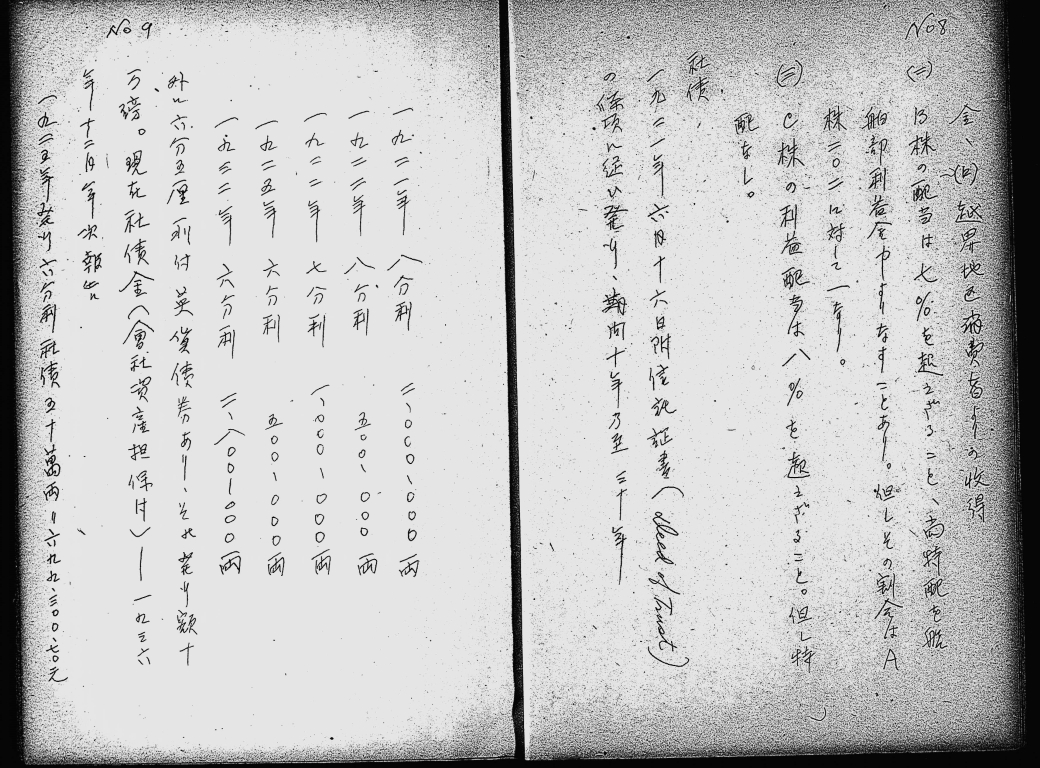 No 8
金、(ロ) 越界地区消費者よりの收得
(二) B株の配当は七%を超えざること、尚特配を能
舶部利益金中よりなすことあり。但しその割合はA
株二〇二に対して一なり。
(三) C株の利益配当は八%を超えざること。但し特
配なし。
社債、
一九二一年六月十六日附信託証書(deed of Trust)
の條項に従ひ発行、期間十年乃至三十年
No 9
一九二一年 八分利 二、〇〇〇、〇〇〇両
一九二二年 八分利 五〇〇、〇〇〇両
一九二二年 七分利 一、〇〇〇、〇〇〇両
一九二五年 六分利 五〇〇、〇〇〇両
一九三二年 六分利 二、八〇〇、〇〇〇両
外に六分五厘利付英貨債券あり、その発行額十
万磅。現在社債金(會社資産担保付)—一九三六
年十二月年次報告
一九二五年発行六分利社債五十萬両=六九九、三〇〇、七〇元